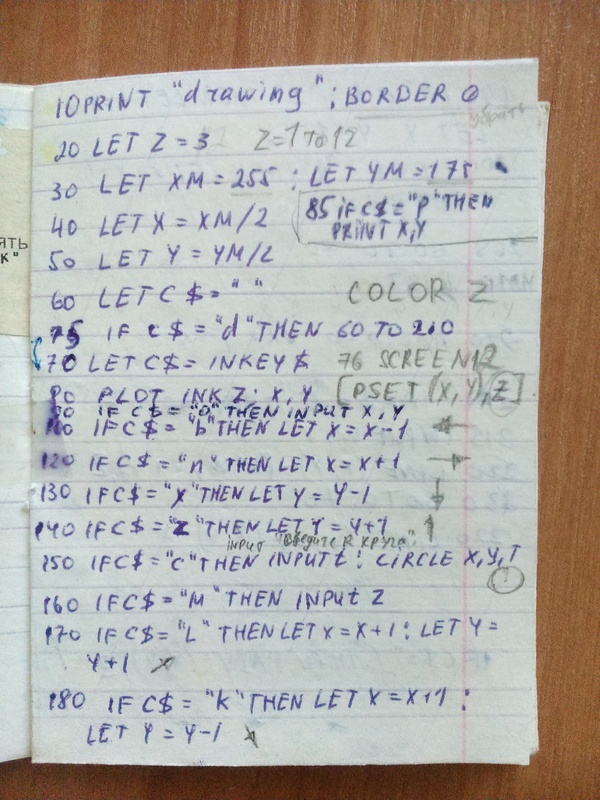 10 PRINT "drawing"; BORDER 0
убрать
20 LET Z = 3   Z=1 TO 12
30 LET XM = 255 : LET YM = 175
40 LET X = XM/2
85 IF C$="P" THEN
PRINT X,Y
50 LET Y = YM/2
ЯТЬ
К"
60 LET C$= " "   COLOR Z
75 IF C$ = "d" THEN GO TO 210
70 LET C$= INKEY$   76 SCREEN 12
80 PLOT INK Z; X, Y   [PSET (X,Y),Z]
IF C$= "O" THEN INPUT X, Y
IF C$= "b" THEN LET X = X-1 ←
120 IF C$ = "n" THEN LET X = X+1 →
130 IF C$= "Y" THEN LET Y = Y-1 ↓
140 IF C$= "Z" THEN LET Y = Y+1 ↑
INPUT "Введите R круга"
150 IF C$= "C" THEN INPUT t : CIRCLE X, Y, T
!
160 IF C$= "M" THEN INPUT Z
170 IF C$= "L" THEN LET X = X+1 : LET Y =
Y+1 ↗
180 IF C$ = "K" THEN LET X = X+1 :
LET Y = Y-1 ↘